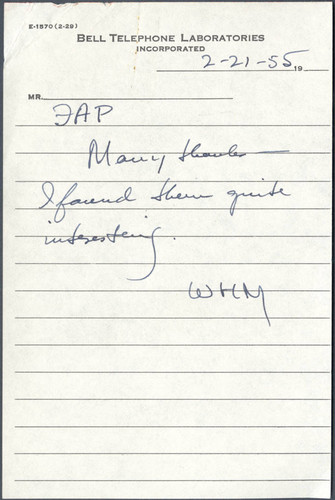 E-1570 (2-29)
BELL TELEPHONE LABORATORIES
INCORPORATED
2-21-55 19
MR.
JAP
Many thanks—
I found them quite
interesting.
WHM